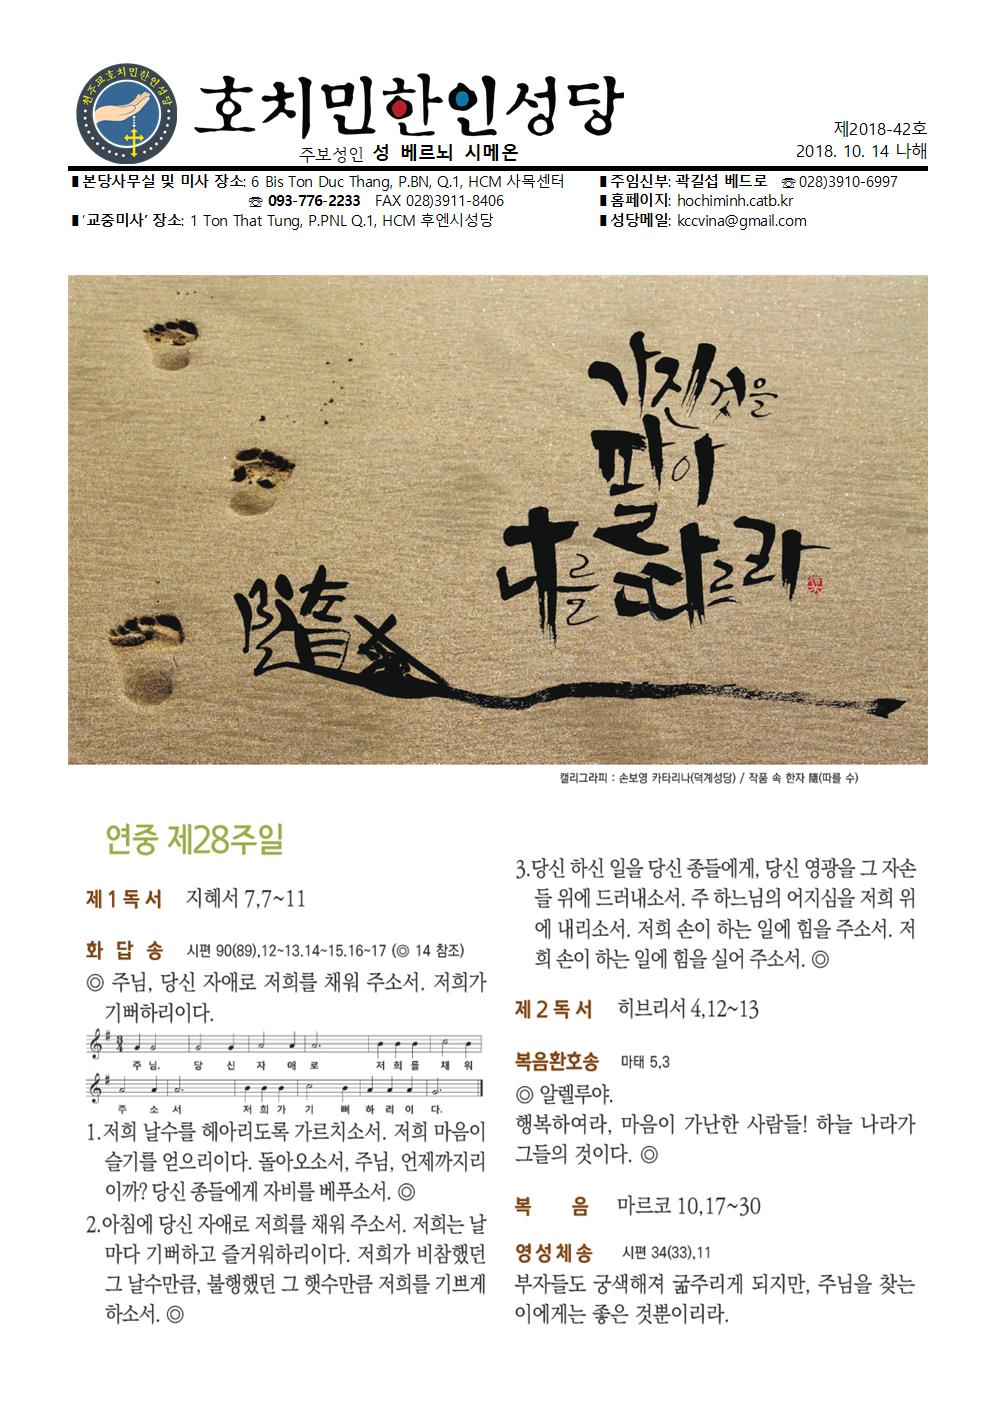 천주교호치민한인성당
호치민한인성당
주보성인 성 베르뇌 시메온
제2018-42호
2018. 10. 14 나해
▮본당사무실 및 미사 장소: 6 Bis Ton Duc Thang, P.BN, Q.1, HCM 사목센터
☏ 093-776-2233 FAX 028)3911-8406
▮'교중미사' 장소: 1 Ton That Tung, P.PNL Q.1, HCM 후엔시성당
▮주임신부: 곽길섭 베드로 ☏028)3910-6997
▮홈페이지: hochiminh.catb.kr
▮성당메일: kccvina@gmail.com
가진 것을
팔아
나를 따르라
隨
캘리그라피 : 손보영 카타리나(덕계성당) / 작품 속 한자 隨(따를 수)
연중 제28주일
제1독서 지혜서 7,7~11
화답송 시편 90(89),12~13.14~15.16~17 (◎ 14 참조)
◎ 주님, 당신 자애로 저희를 채워 주소서. 저희가
기뻐하리이다.
주 님, 당 신 자 애 로 저 희 를 채 워
주 소 서 저 희 가 기 뻐 하 리 이 다.
1.저희 날수를 헤아리도록 가르치소서. 저희 마음이
슬기를 얻으리이다. 돌아오소서, 주님, 언제까지리
이까? 당신 종들에게 자비를 베푸소서. ◎
2.아침에 당신 자애로 저희를 채워 주소서. 저희는 날
마다 기뻐하고 즐거워하리이다. 저희가 비참했던
그 날수만큼, 불행했던 그 햇수만큼 저희를 기쁘게
하소서. ◎
3.당신 하신 일을 당신 종들에게, 당신 영광을 그 자손
들 위에 드러내소서. 주 하느님의 어지심을 저희 위
에 내리소서. 저희 손이 하는 일에 힘을 주소서. 저
희 손이 하는 일에 힘을 실어 주소서. ◎
제2독서 히브리서 4,12~13
복음환호송 마태 5,3
◎ 알렐루야.
행복하여라, 마음이 가난한 사람들! 하늘 나라가
그들의 것이다. ◎
복 음 마르코 10,17~30
영성체송 시편 34(33),11
부자들도 궁색해져 굶주리게 되지만, 주님을 찾는
이에게는 좋은 것뿐이리라.